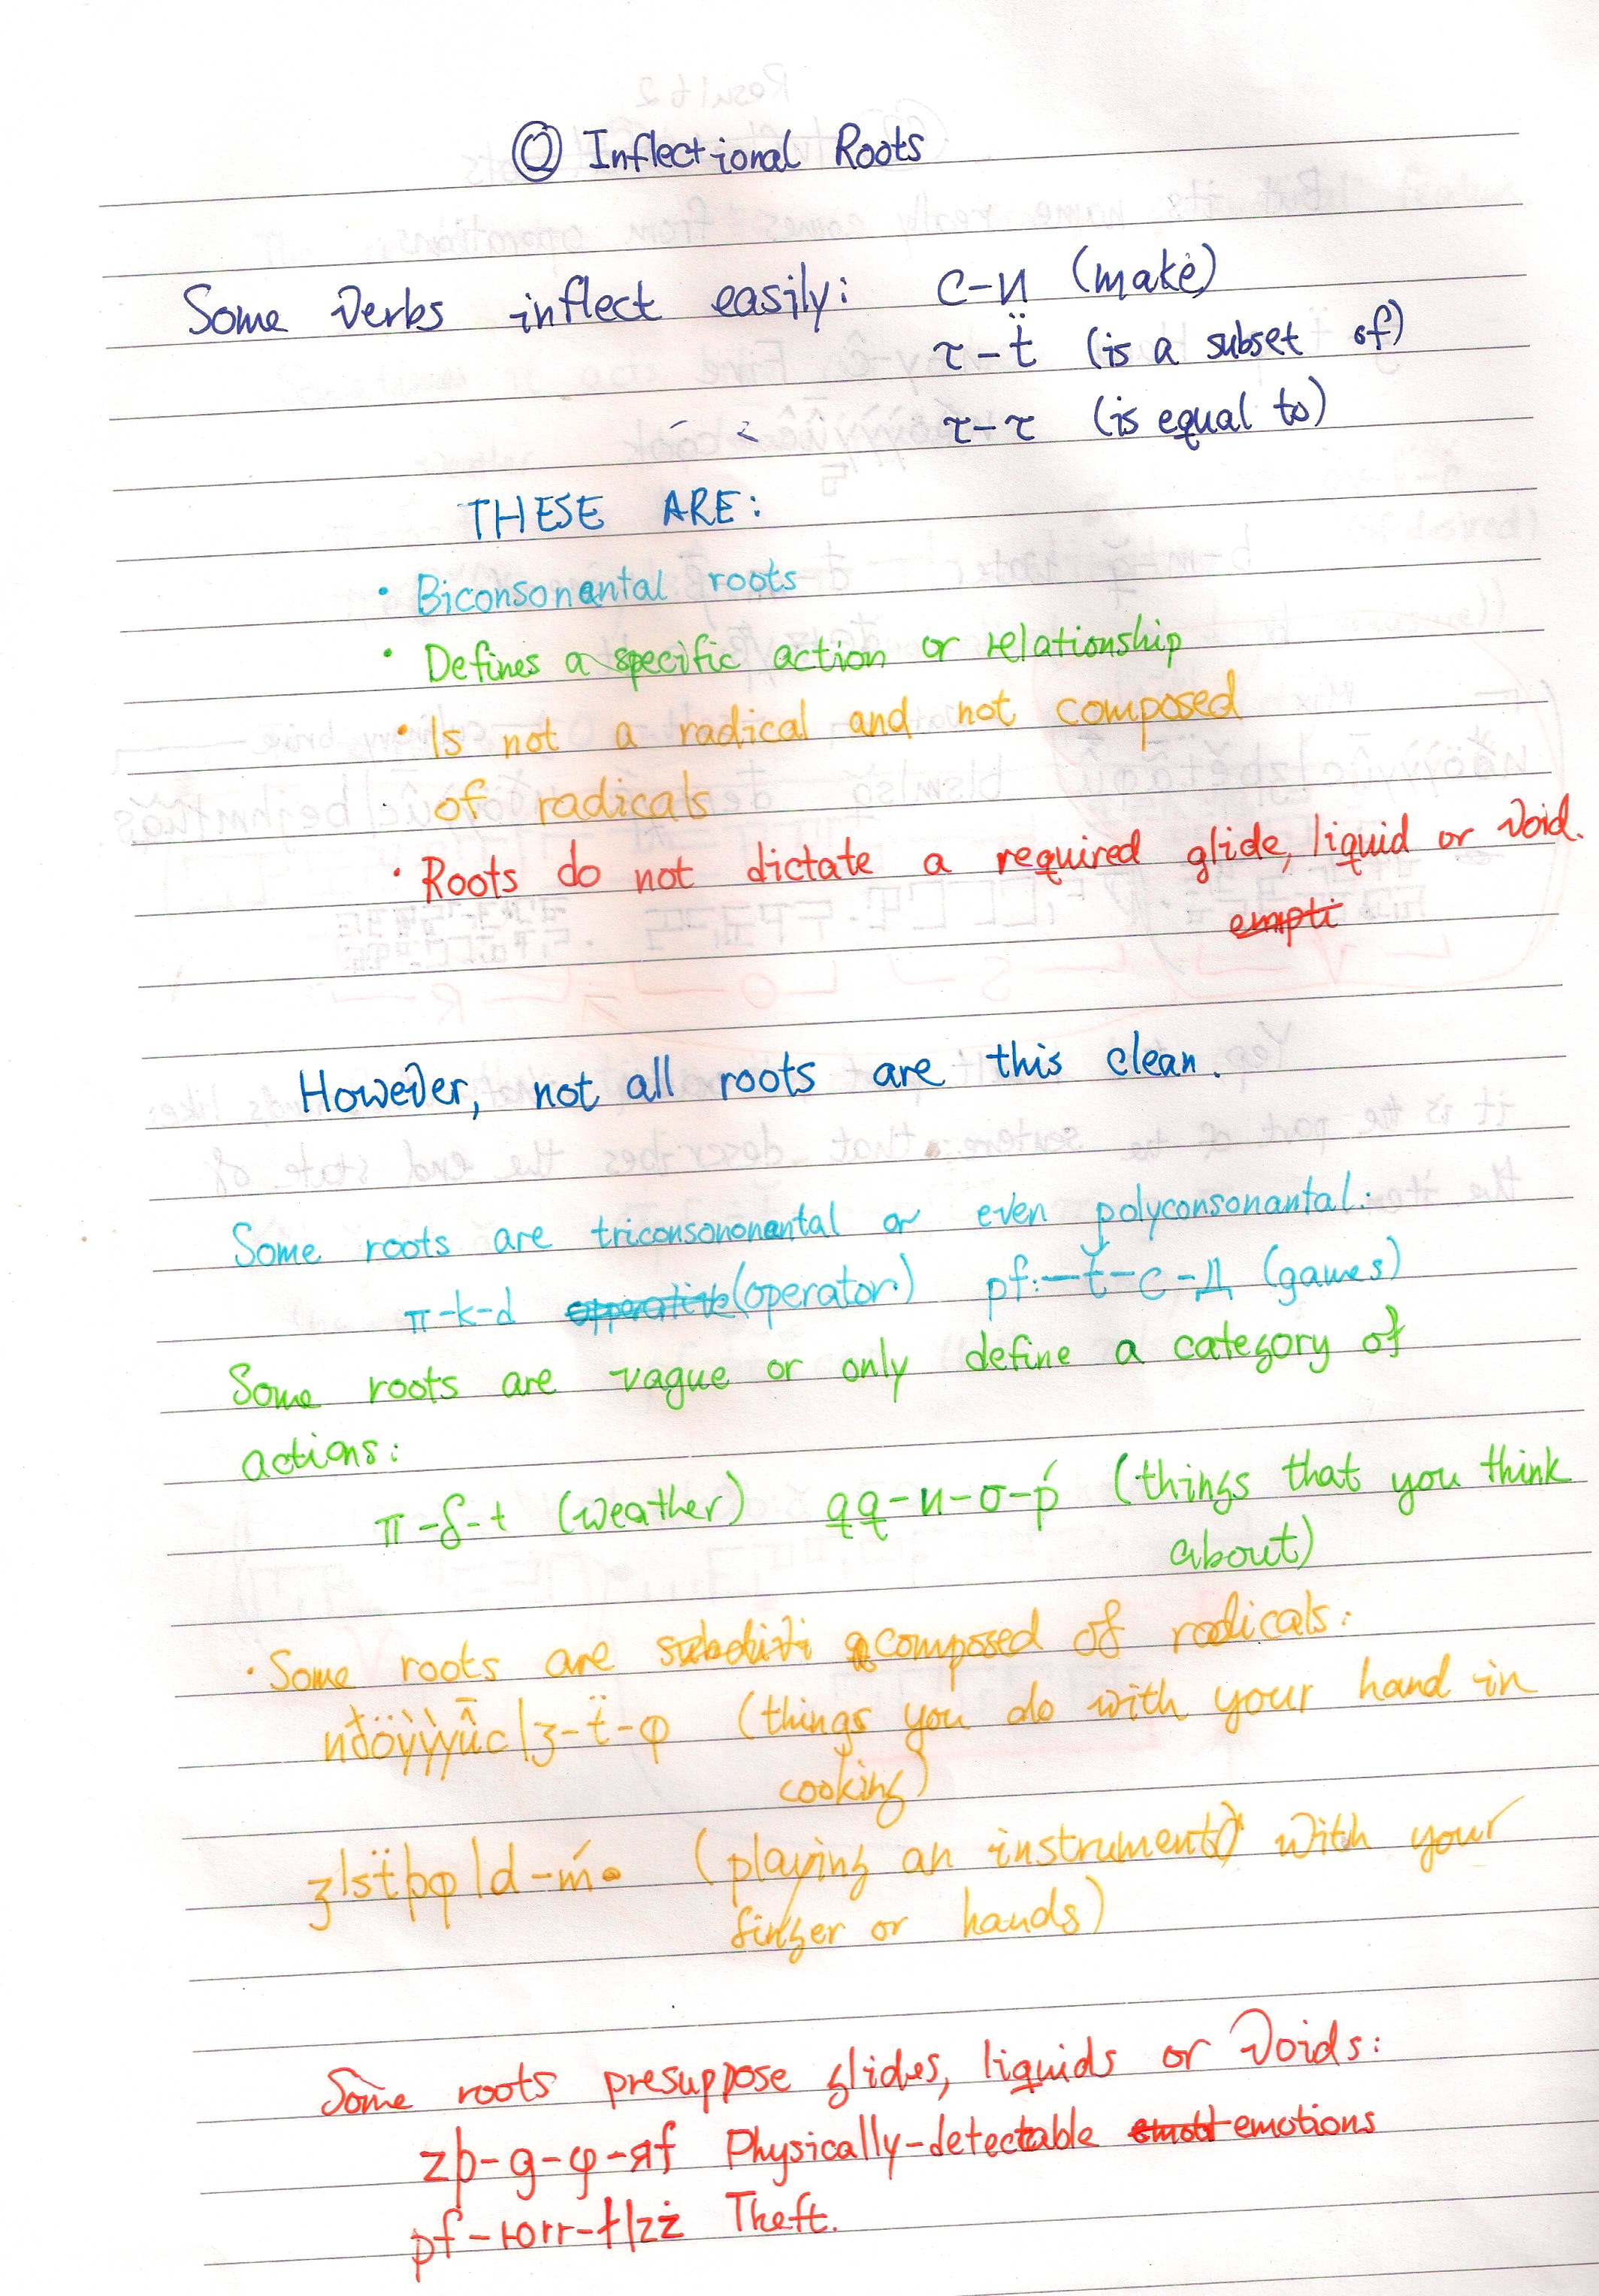 Ⓠ Inflectional Roots
Some verbs inflect easily: c-и (make)
τ-ẗ (is a subset of)
τ-τ (is equal to)
THESE ARE:
• Biconsonantal roots
• Defines a specific action or relationship
• Is not a radical and not composed
of radicals
• Roots do not dictate a required glide, liquid or void.
empti
However, not all roots are this clean.
Some roots are triconsononantal or even polyconsonantal:
π-k-d (operator) (games)
Some roots are vague or only define a category of
actions:
π-δ-t (weather) qq-и-σ-ṕ (things that you think
about)
• Some roots are composed of radicals:
(things you do with your hand in
cooking)
(playing an instrument) with your
finger or hands)
Some roots presuppose glides, liquids or voids:
zþ-g-φ-яf Physically-detectable emotions
Theft.